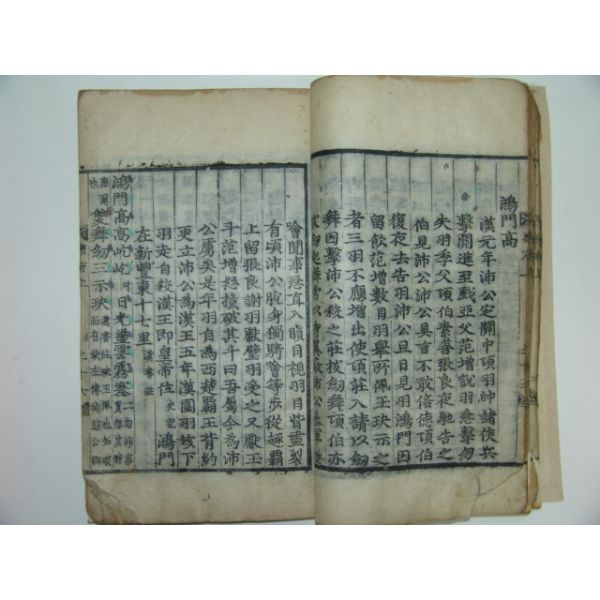 鴻門高
漢元年沛公定關中項羽帥諸侯兵
擊關進至戲亞父范增說羽急擊勿
失羽季父項伯素善張良夜馳告之
伯見沛公沛公具言不敢倍德項伯
復夜去告羽沛公旦日見羽鴻門因
留飲范增數目羽舉所佩玉玦示之
者三羽不應增出使項莊入請以劔
舞因擊沛公殺之莊拔劔舞項伯亦
拔劔起舞常以身翼蔽沛公
噲聞事急直入瞋目視羽目眥盡裂
有頃沛公脫身獨騎噲等步從趨霸
上留張良謝羽獻璧羽受之又獻玉
斗范增怒撞破其斗曰吾屬今為沛
公虜矣是平羽自為西楚霸王背約
更立沛公為漢王五年漢圍羽垓下
羽走自殺漢王即皇帝位 史記 鴻門
在新豐東十七里 漢書註
鴻門高高屹屹 日光盪雲雲塞
雙舞劔三示玦